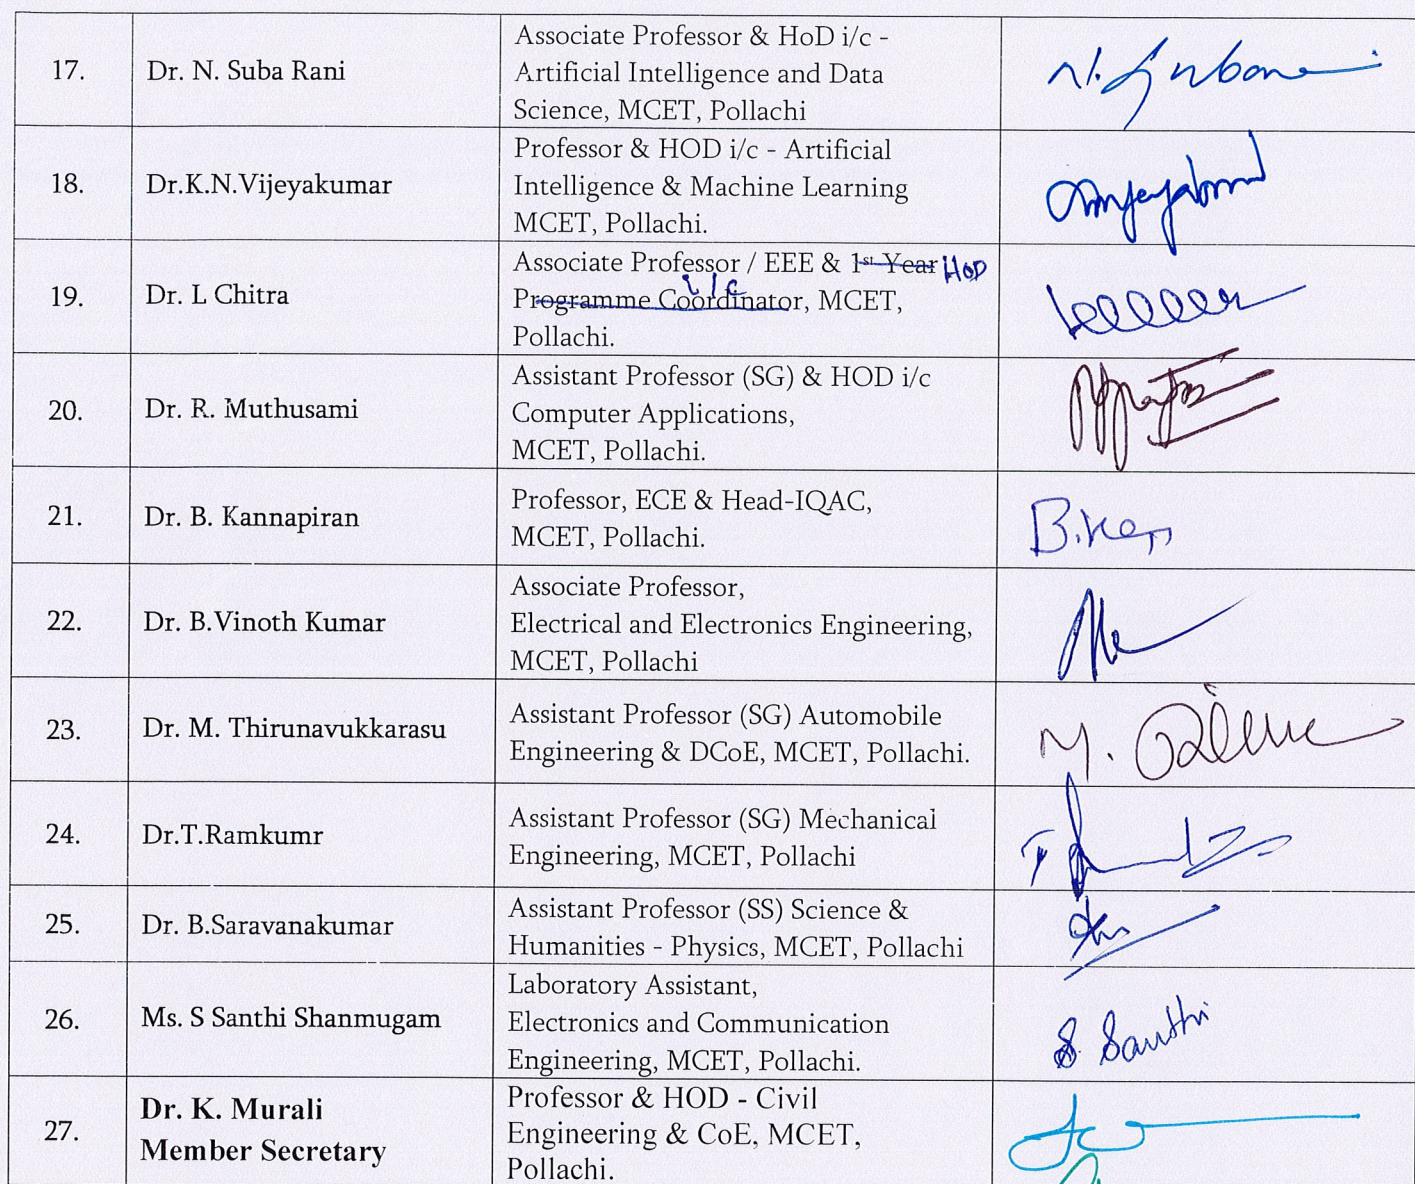 17.
Dr. N. Suba Rani
Associate Professor & HoD i/c -
Artificial Intelligence and Data
Science, MCET, Pollachi
18.
Dr.K.N.Vijeyakumar
Professor & HOD i/c - Artificial
Intelligence & Machine Learning
MCET, Pollachi.
19.
Dr. L Chitra
Associate Professor / EEE & 1st Year HOD
i/c
Programme Coordinator, MCET,
Pollachi.
20.
Dr. R. Muthusami
Assistant Professor (SG) & HOD i/c
Computer Applications,
MCET, Pollachi.
21.
Dr. B. Kannapiran
Professor, ECE & Head-IQAC,
MCET, Pollachi.
22.
Dr. B.Vinoth Kumar
Associate Professor,
Electrical and Electronics Engineering,
MCET, Pollachi
23.
Dr. M. Thirunavukkarasu
Assistant Professor (SG) Automobile
Engineering & DCoE, MCET, Pollachi.
24.
Dr.T.Ramkumr
Assistant Professor (SG) Mechanical
Engineering, MCET, Pollachi
25.
Dr. B.Saravanakumar
Assistant Professor (SS) Science &
Humanities - Physics, MCET, Pollachi
26.
Ms. S Santhi Shanmugam
Laboratory Assistant,
Electronics and Communication
Engineering, MCET, Pollachi.
S Santhi
27.
Dr. K. Murali
Member Secretary
Professor & HOD - Civil
Engineering & CoE, MCET,
Pollachi.